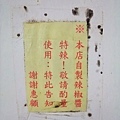 ※本店自製辣椒醬
特辣！敬請酌量
使用；特此告知
※謝謝惠顧